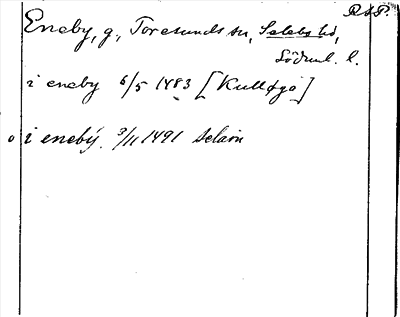 R.A.P.
Eneby, g., Toresunds sn, Selebo hd,
Södml. l.
i eneby 6/5 1483 [Kulløgö]
o i enebÿ 3/11 1491 Selaön